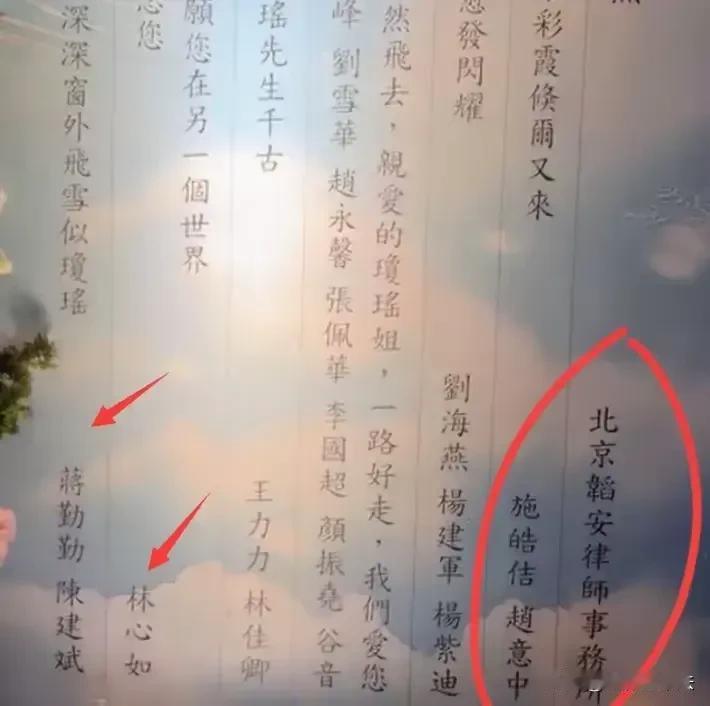 彩霞倏爾又來
北京韜安律師事務所
施皓佶 趙意中
您發閃耀
劉海燕 楊建軍 楊紫迪
然飛去，親愛的瓊瑤姐，一路好走，我們愛您
峰 劉雪華 趙永馨 張佩華 李國超 顏振堯 谷音
瑤先生千古
王力力 林佳卿
願您在另一個世界
您您
林心如
深深窗外飛雪似瓊瑤
蔣勤勤 陳建斌